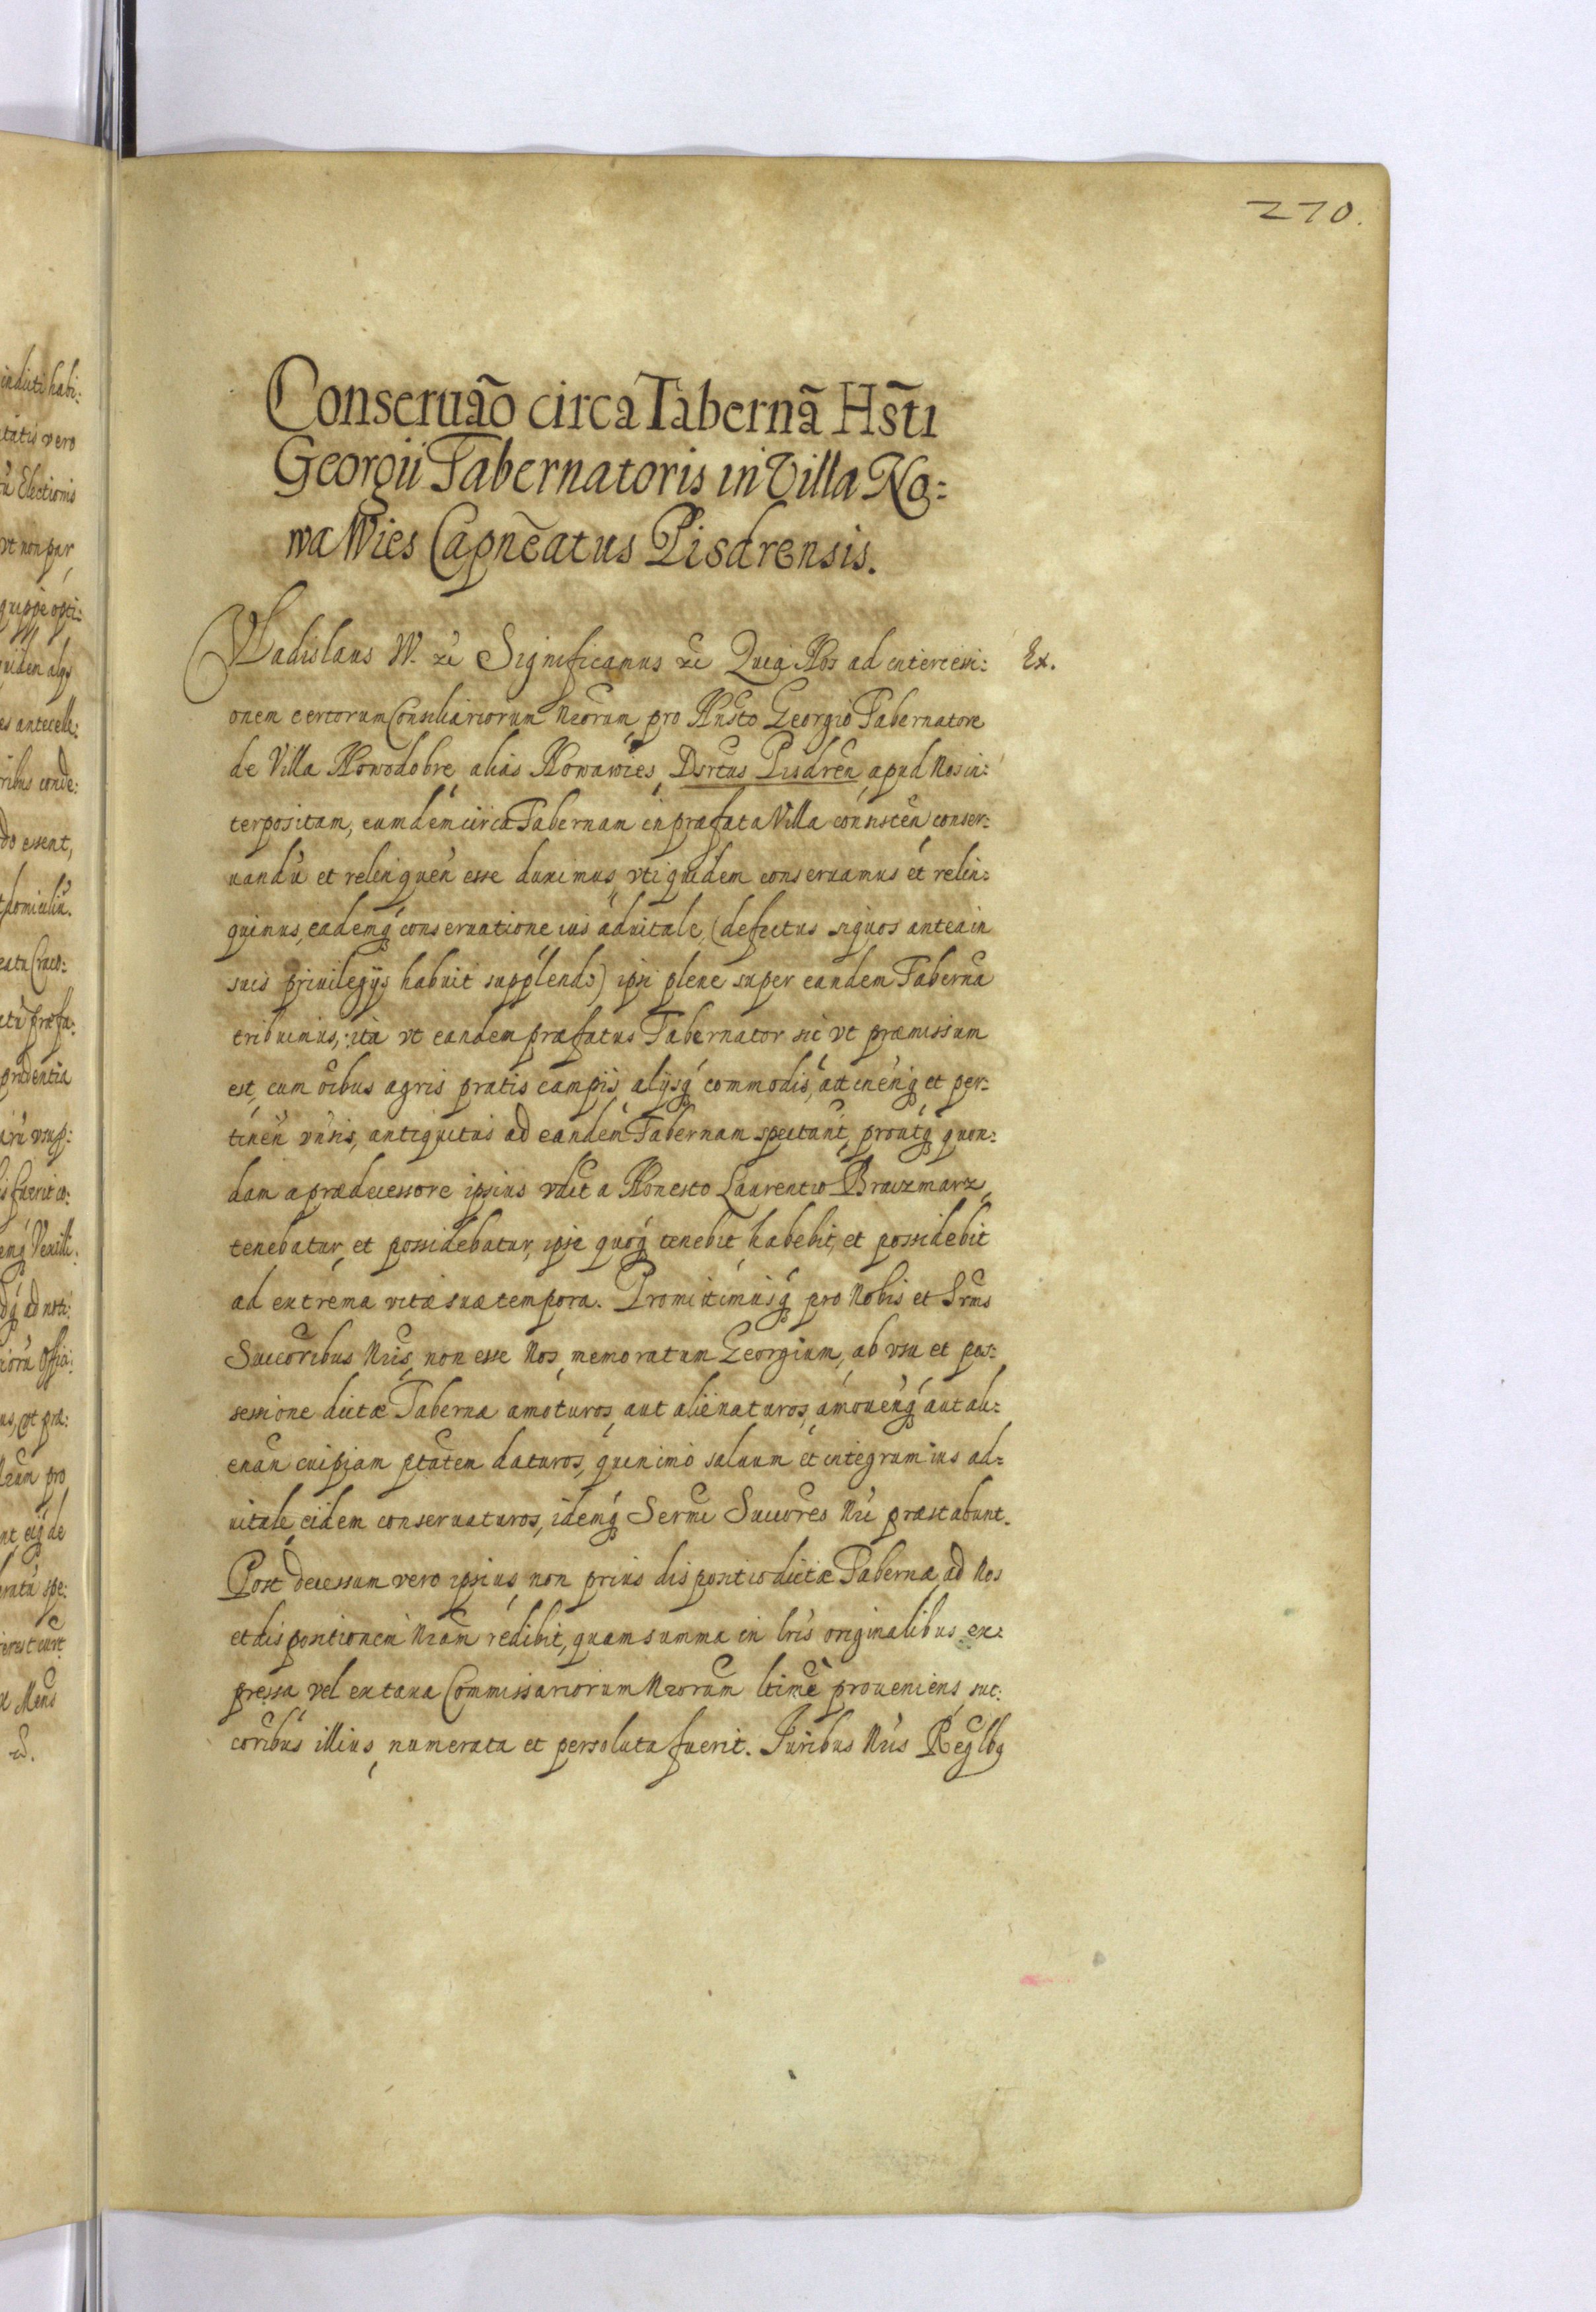 270.
Conseruaõ circa Tabernã Hs̃ti
Georgii Tabernatoris in Villa No=
wa Wies Capnẽatus Pisdrensis.
Vladislaus W. &c Significamus &c Quia Nos ad intercessi: Ex.
onem certorum Consiliariorum Nrorum, pro Hnsto Georgio Tabernatore
de Villa Nowodobre, alias Nowawies, Dsrtus Pisdren, apud Nos in:
terpositam, eumdem circa Tabernam in præfata Villa consisteñ conser:
uandũ et relinqueñ esse duximus, vti quidem conseruamus et relin:
quimus, eademq conseruatione ius aduitale, (defectus siquos antea in
suis priuilegijs habuit supplendo) ipsi plene super eandem Taberna
tribuimus, ita vt eandem præfatus Tabernator sic vt præmissum
est, cum oibus agris pratis campis, alijsq commodis, attineñq et per:
tineñ vnsis, antiquitus ad eandem Tabernam spectant, proutq quon:
dam a prædecessore ipsius vdct a Honesto Laurentio Braczmarz,
tenebatur, et possidebatur, ipse quoq tenebit, habebit, et possidebit
ad extrema vitæ suæ tempora. Promittimusq pro Nobis et Srmis
Succoribus Nris, non esse Nos, memoratum Georgium, ab vsu et pos:
sessione dictæ Tabernæ amoturos, aut alienaturos, amoueñq aut ali:
enan cuipiam ptatem daturos, quinimo saluum et integrum ius ad:
uitale, eidem conseruaturos, idemq Sermi Succores Nri præstabunt.
Post decessum vero ipsius, non prius dispositio dictæ Tabernæ, ad Nos
et dispositionem Nram redibit, quam summa in lris originalibus ex:
pressa, vel ex taxa Commissariorum Nrorum ltime proueniens, suc:
coribus illius, numerata et persoluta fuerit. Juribus Nris Reglbq